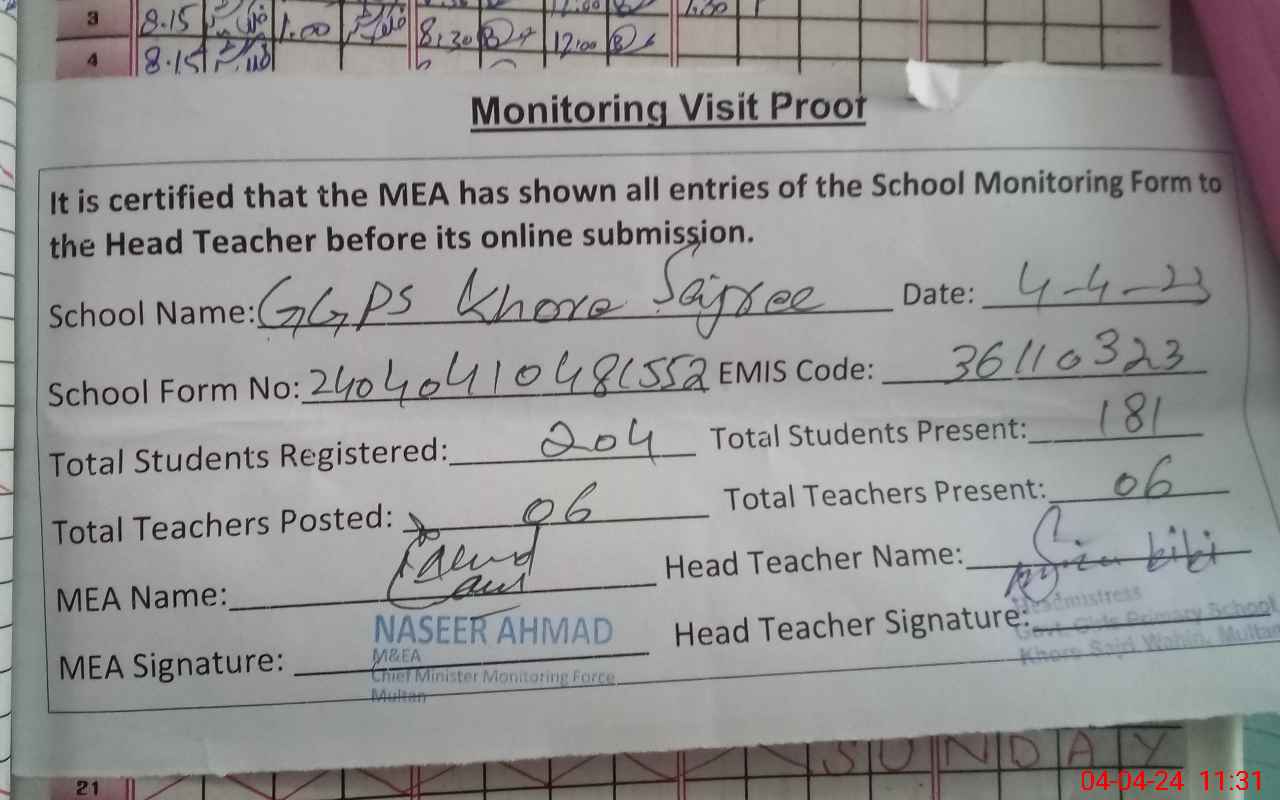 3 8.15 1.00 8:30 12:00 1.30
4 8.15
Monitoring Visit Proof
It is certified that the MEA has shown all entries of the School Monitoring Form to
the Head Teacher before its online submission.
School Name: GGPS Khore Sajree Date: 4-4-23
School Form No: 24040410481552 EMIS Code: 36110323
Total Students Registered: 204 Total Students Present: 181
Total Teachers Posted: 06 Total Teachers Present: 06
MEA Name: Head Teacher Name: bibi
NASEER AHMAD
MEA Signature: Head Teacher Signature:
M&EA
Chief Minister Monitoring Force
Multan
Headmistress
Govt. Girls Primary School
Khore Sajri Wahin, Multan
SUNDAY
21
04-04-24 11:31